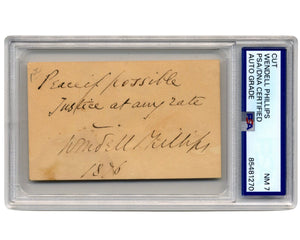 Peace if possible
Justice at any rate
Wendell Phillips
CUT
WENDELL PHILLIPS
PSA/DNA CERTIFIED
AUTO GRADE
NM 7
85481270
PSA